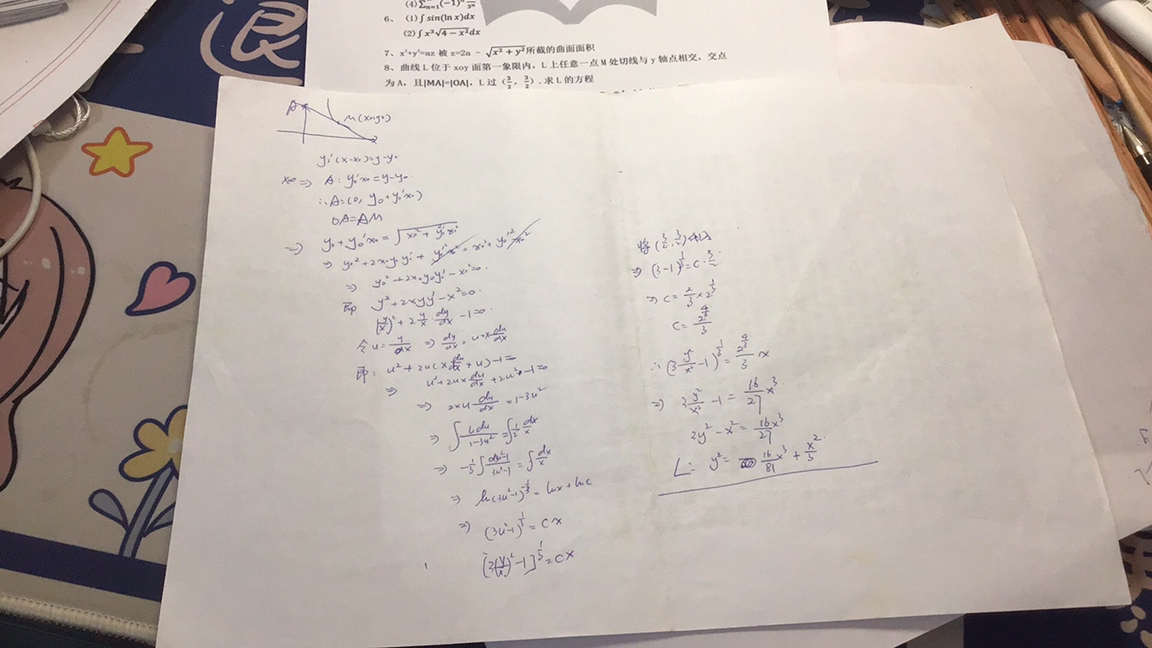 (4)∑ₙ₌₁(-1)ⁿ 3ⁿ
6、 (1)∫sin(ln x)dx
(2)∫x³√(4-x²)dx
7、x²+y²=az 被 z=2a - √(x²+y²)所截的曲面面积
8、曲线 L 位于 xoy 面第一象限内，L 上任意一点 M 处切线与 y 轴点相交，交点
为 A，且|MA|=|OA|，L 过 (3/2, 3/2) .求 L 的方程
A M(x₀,y₀)
y₀'(x-x₀)=y-y₀
x=0 ⇒ A: y₀'x₀=y-y₀
∴A=(0, y₀+y₀'x₀)
OA=AM
⇒ y₀+y₀'x₀=√(x₀²+y₀'²x₀²)
⇒ y₀²+2x₀y₀y₀'+y₀'²x₀²=x₀²+y₀'²x₀²
⇒ y₀²+2x₀y₀y₀'-x₀²=0.
即 y²+2xyy'-x²=0.
(y/x)²+2 y/x · dy/dx -1=0.
令u=y/dx ⇒ dy/dx=u+x du/dx
即: u²+2u(x du/dx+u)-1=0
⇒ u²+2ux du/dx+2u²-1=0
⇒ 2xu du/dx=1-3u²
⇒ ∫ udu/(1-3u²)=∫ ½ dx/x
⇒ -1/3 ∫ d3u²-1/(3u²-1)=∫ dx/x
⇒ ln(3u²-1)^(-1/3)=lnx+lnc
⇒ (3u²-1)^(1/3)=cx
[3(y/x)²-1]^(1/3)=cx
将(3/2,3/2)代入
⇒ (3-1)^(1/3)=c·3/2
⇒ c=2/3×2^(1/3)
c=2^(4/3)/3
∴(3 y²/x²-1)^(1/3)=2^(4/3)/3 x
⇒ 3y²/x²-1=16/27 x³
3y²-x²=16/27 x³
L: y²= 16/81 x³+x²/3